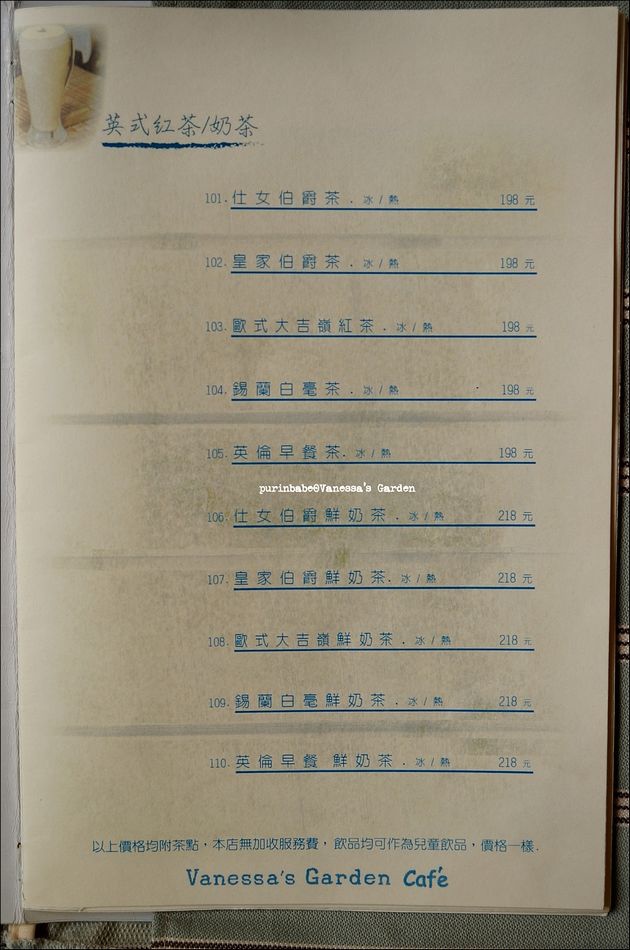 英式紅茶/奶茶
101. 仕女伯爵茶 . 冰 / 熱 198 元
102. 皇家伯爵茶 . 冰 / 熱 198 元
103. 歐式大吉嶺紅茶 . 冰 / 熱 198 元
104. 錫蘭白毫茶 . 冰 / 熱 198 元
105. 英倫早餐茶. 冰 / 熱 198 元
purinbabe@Vanessa's Garden
106. 仕女伯爵鮮奶茶 . 冰 / 熱 218 元
107. 皇家伯爵鮮奶茶. 冰 / 熱 218 元
108. 歐式大吉嶺鮮奶茶 . 冰 / 熱 218 元
109. 錫蘭白毫鮮奶茶 . 冰 / 熱 218 元
110. 英倫早餐 鮮奶茶 . 冰 / 熱 218 元
以上價格均附茶點，本店無加收服務費，飲品均可作為兒童飲品，價格一樣.
Vanessa's Garden Café